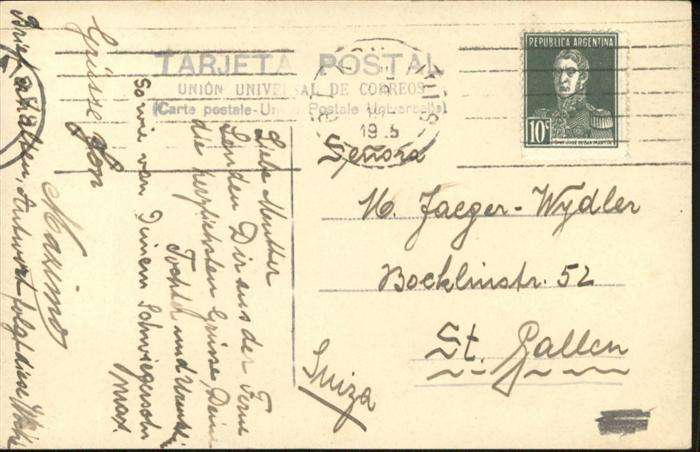 TARJETA POSTAL
UNIÓN UNIVERSAL DE CORREOS
(Carte postale-Union Postale Universelle)
REPUBLICA ARGENTINA
10c
Señora
M. Jaeger-Wydler
Böcklinstr. 52
St. Gallen
Suiza
Liebe Mutter
Senden Dir aus der Ferne
die herzlichsten Grüsse, Deine
Tochter und
sowie von Deinem Schwiegersohn
Max.
Grüsse von
Maximo
Brief erhalten, Antwort folgt diese